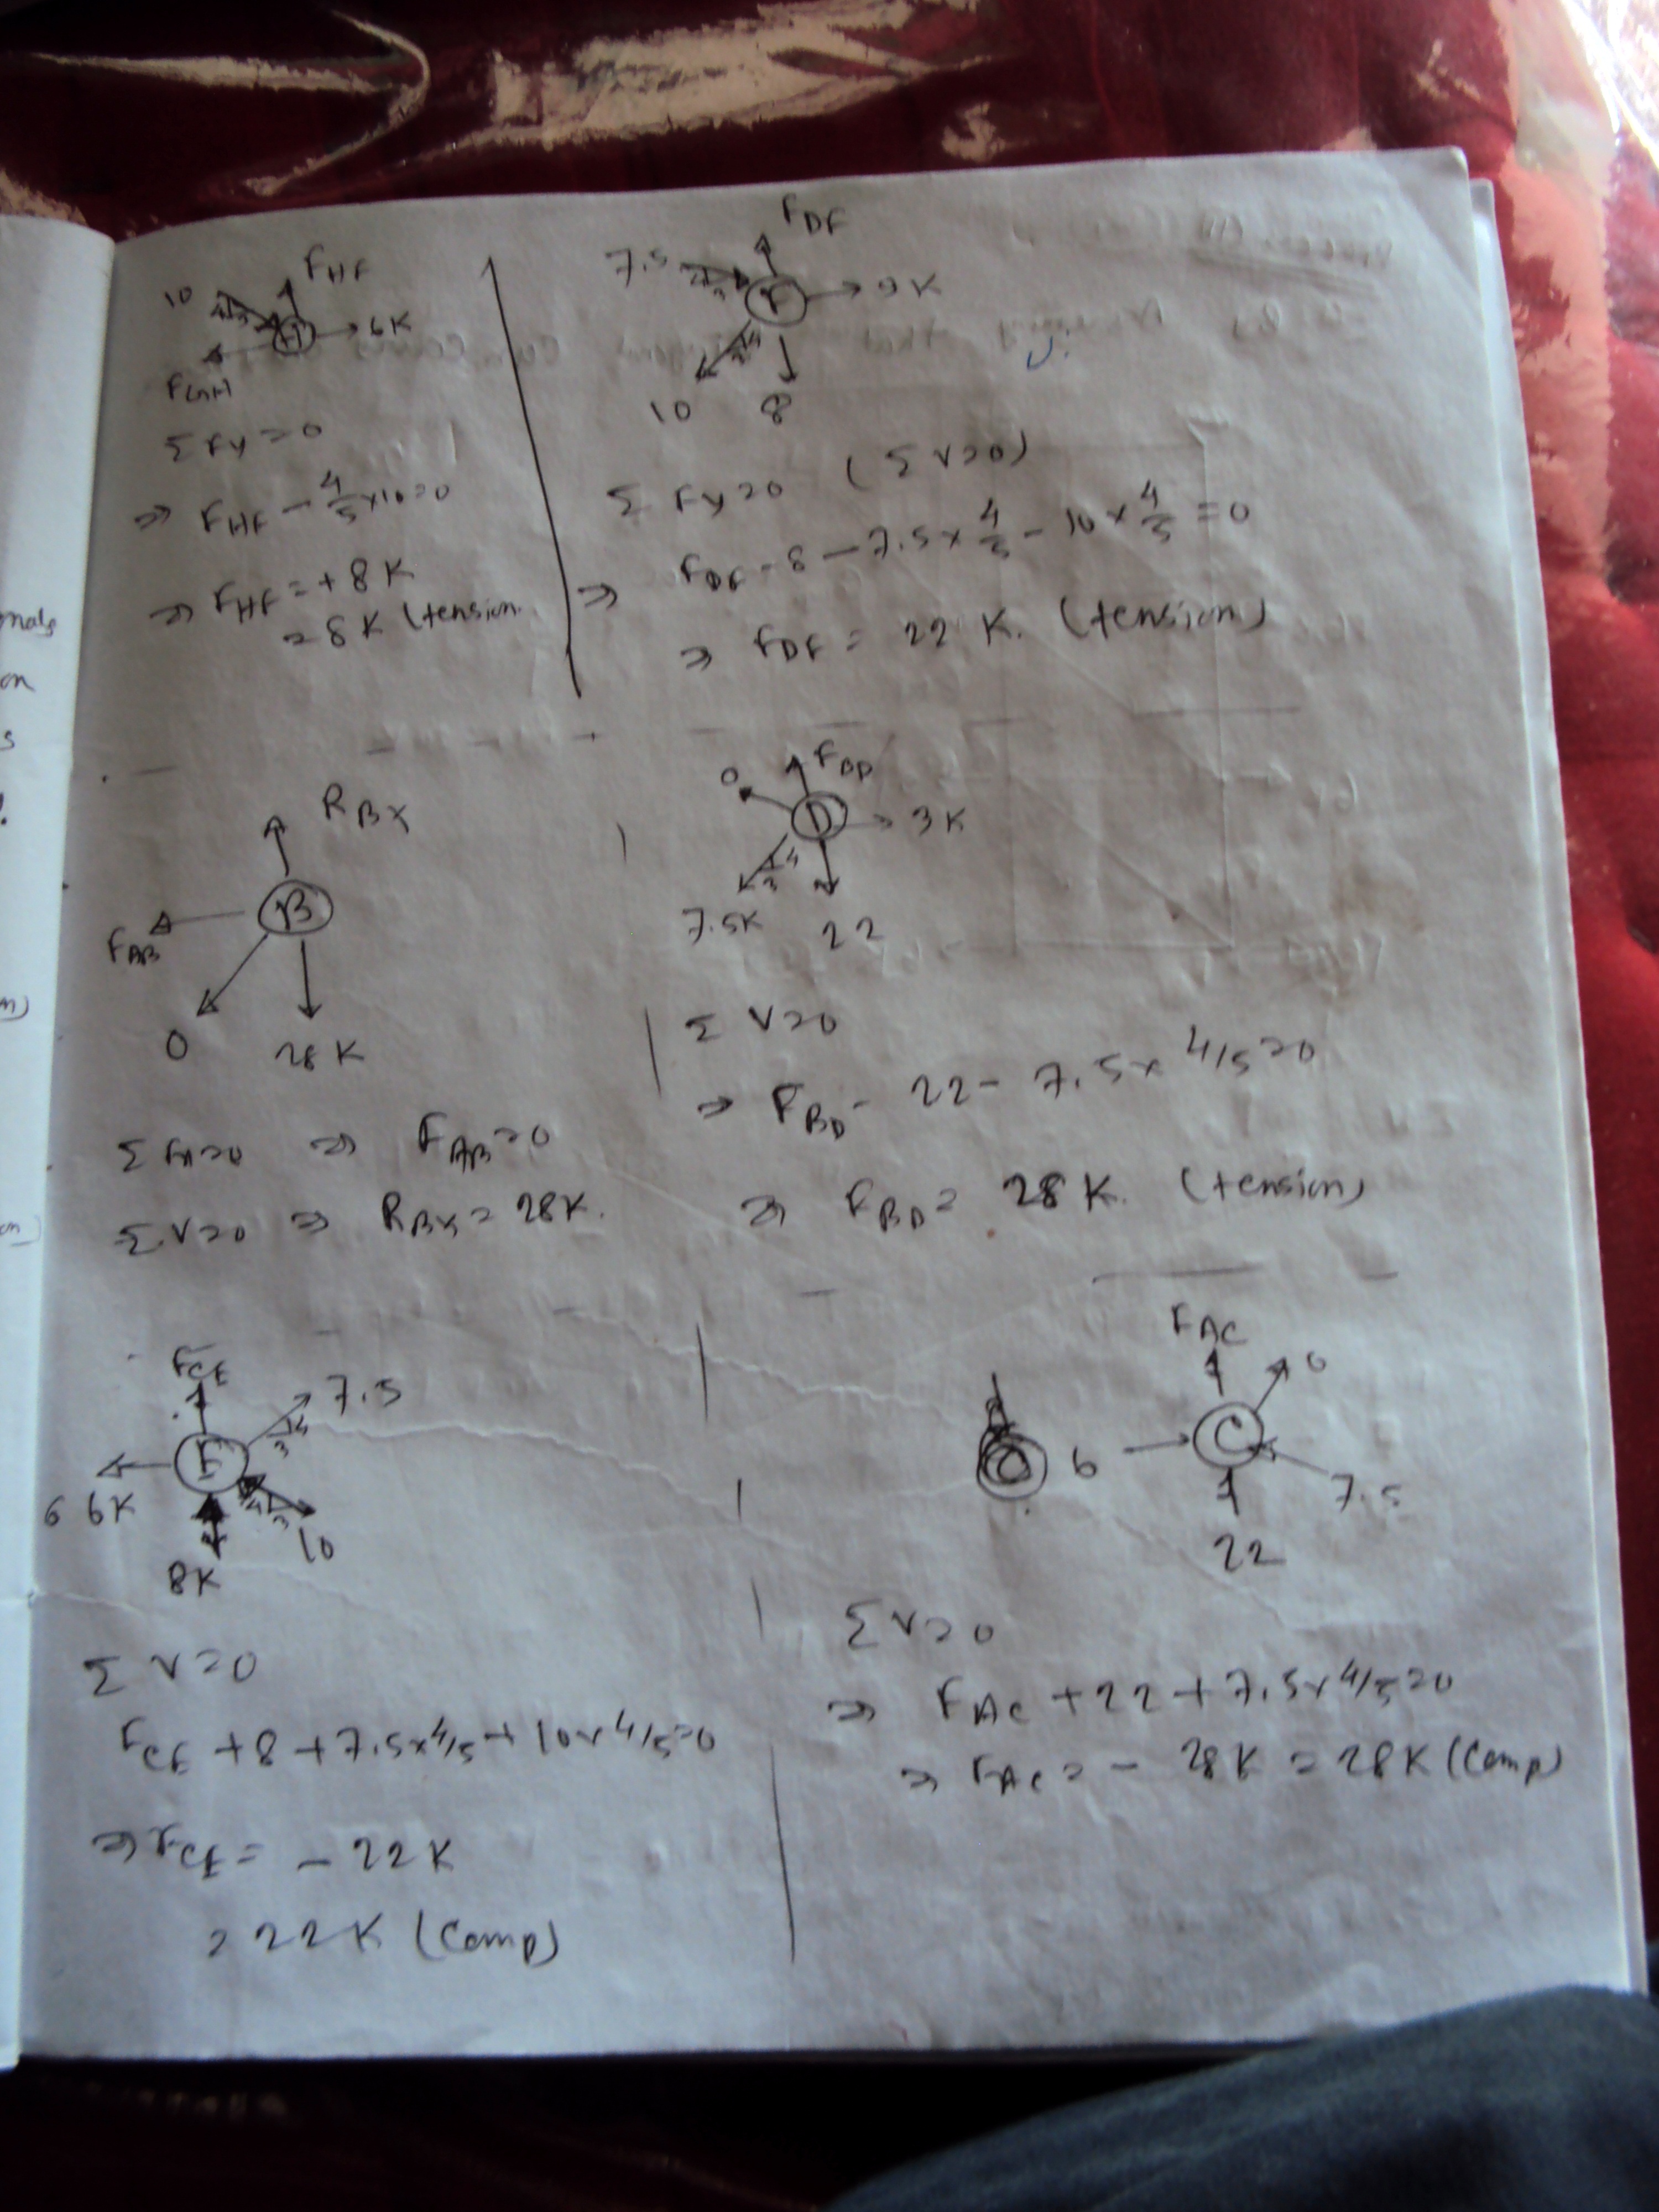 10
F_HF
H
6K
F_GH
Σ Fy = 0
⇒ F_HF - 4/5 × 10 = 0
⇒ F_HF = + 8 K
= 8 K (tension
7.5
F_DF
F
10
8
Σ Fy = 0 (Σ V = 0)
⇒ F_DF - 8 - 7.5 × 4/5 - 10 × 4/5 = 0
⇒ F_DF = 22 K. (tension)
R_BX
B
F_AB
0
28 K
Σ V = 0 ⇒ R_BX = 28 K.
⇒ F_AB = 0
0
F_BD
D
3 K
4
3
7.5K
22
Σ V = 0
⇒ F_BD - 22 - 7.5 × 4/5 = 0
⇒ F_BD = 28 K. (tension)
F_CE
7.5
6 6K
8K
10
Σ V = 0
F_CE + 8 + 7.5 × 4/5 + 10 × 4/5 = 0
⇒ F_CE = - 22 K
= 22 K (Comp)
F_AC
0
6
C
7.5
22
Σ V = 0
⇒ F_AC + 22 + 7.5 × 4/5 = 0
⇒ F_AC = - 28 K = 28 K (Comp)
nals
on
s